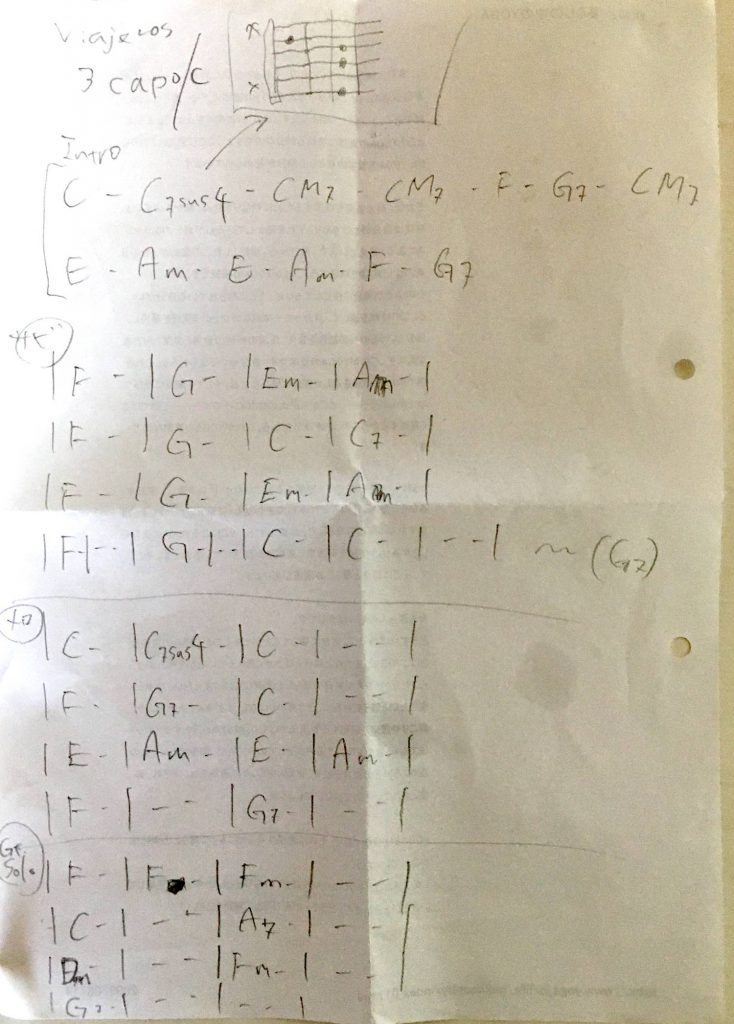 Viajeros
3 capo/C
x
x
Intro
C - C7sus4 - CM7 - CM7 - F - G7 - CM7
E - Am - E - Am - F - G7
サビ
| F - | G - | Em - | Am - |
| F - | G - | C - | C7 - |
| F - | G - | Em - | Am - |
| F - | - - | G - | - - | C - | C - | - - | ~ (G7)
| C - | C7sus4 - | C - | - - |
| F - | G7 - | C - | - - |
| E - | Am - | E - | Am - |
| F - | - - | G7 - | - - |
Gt Solo
| F - | F - | Fm - | - - |
| C - | - - | A7 - | - - |
| Dm - | - - | Fm - | - - |
| G7 - | - - | - - |